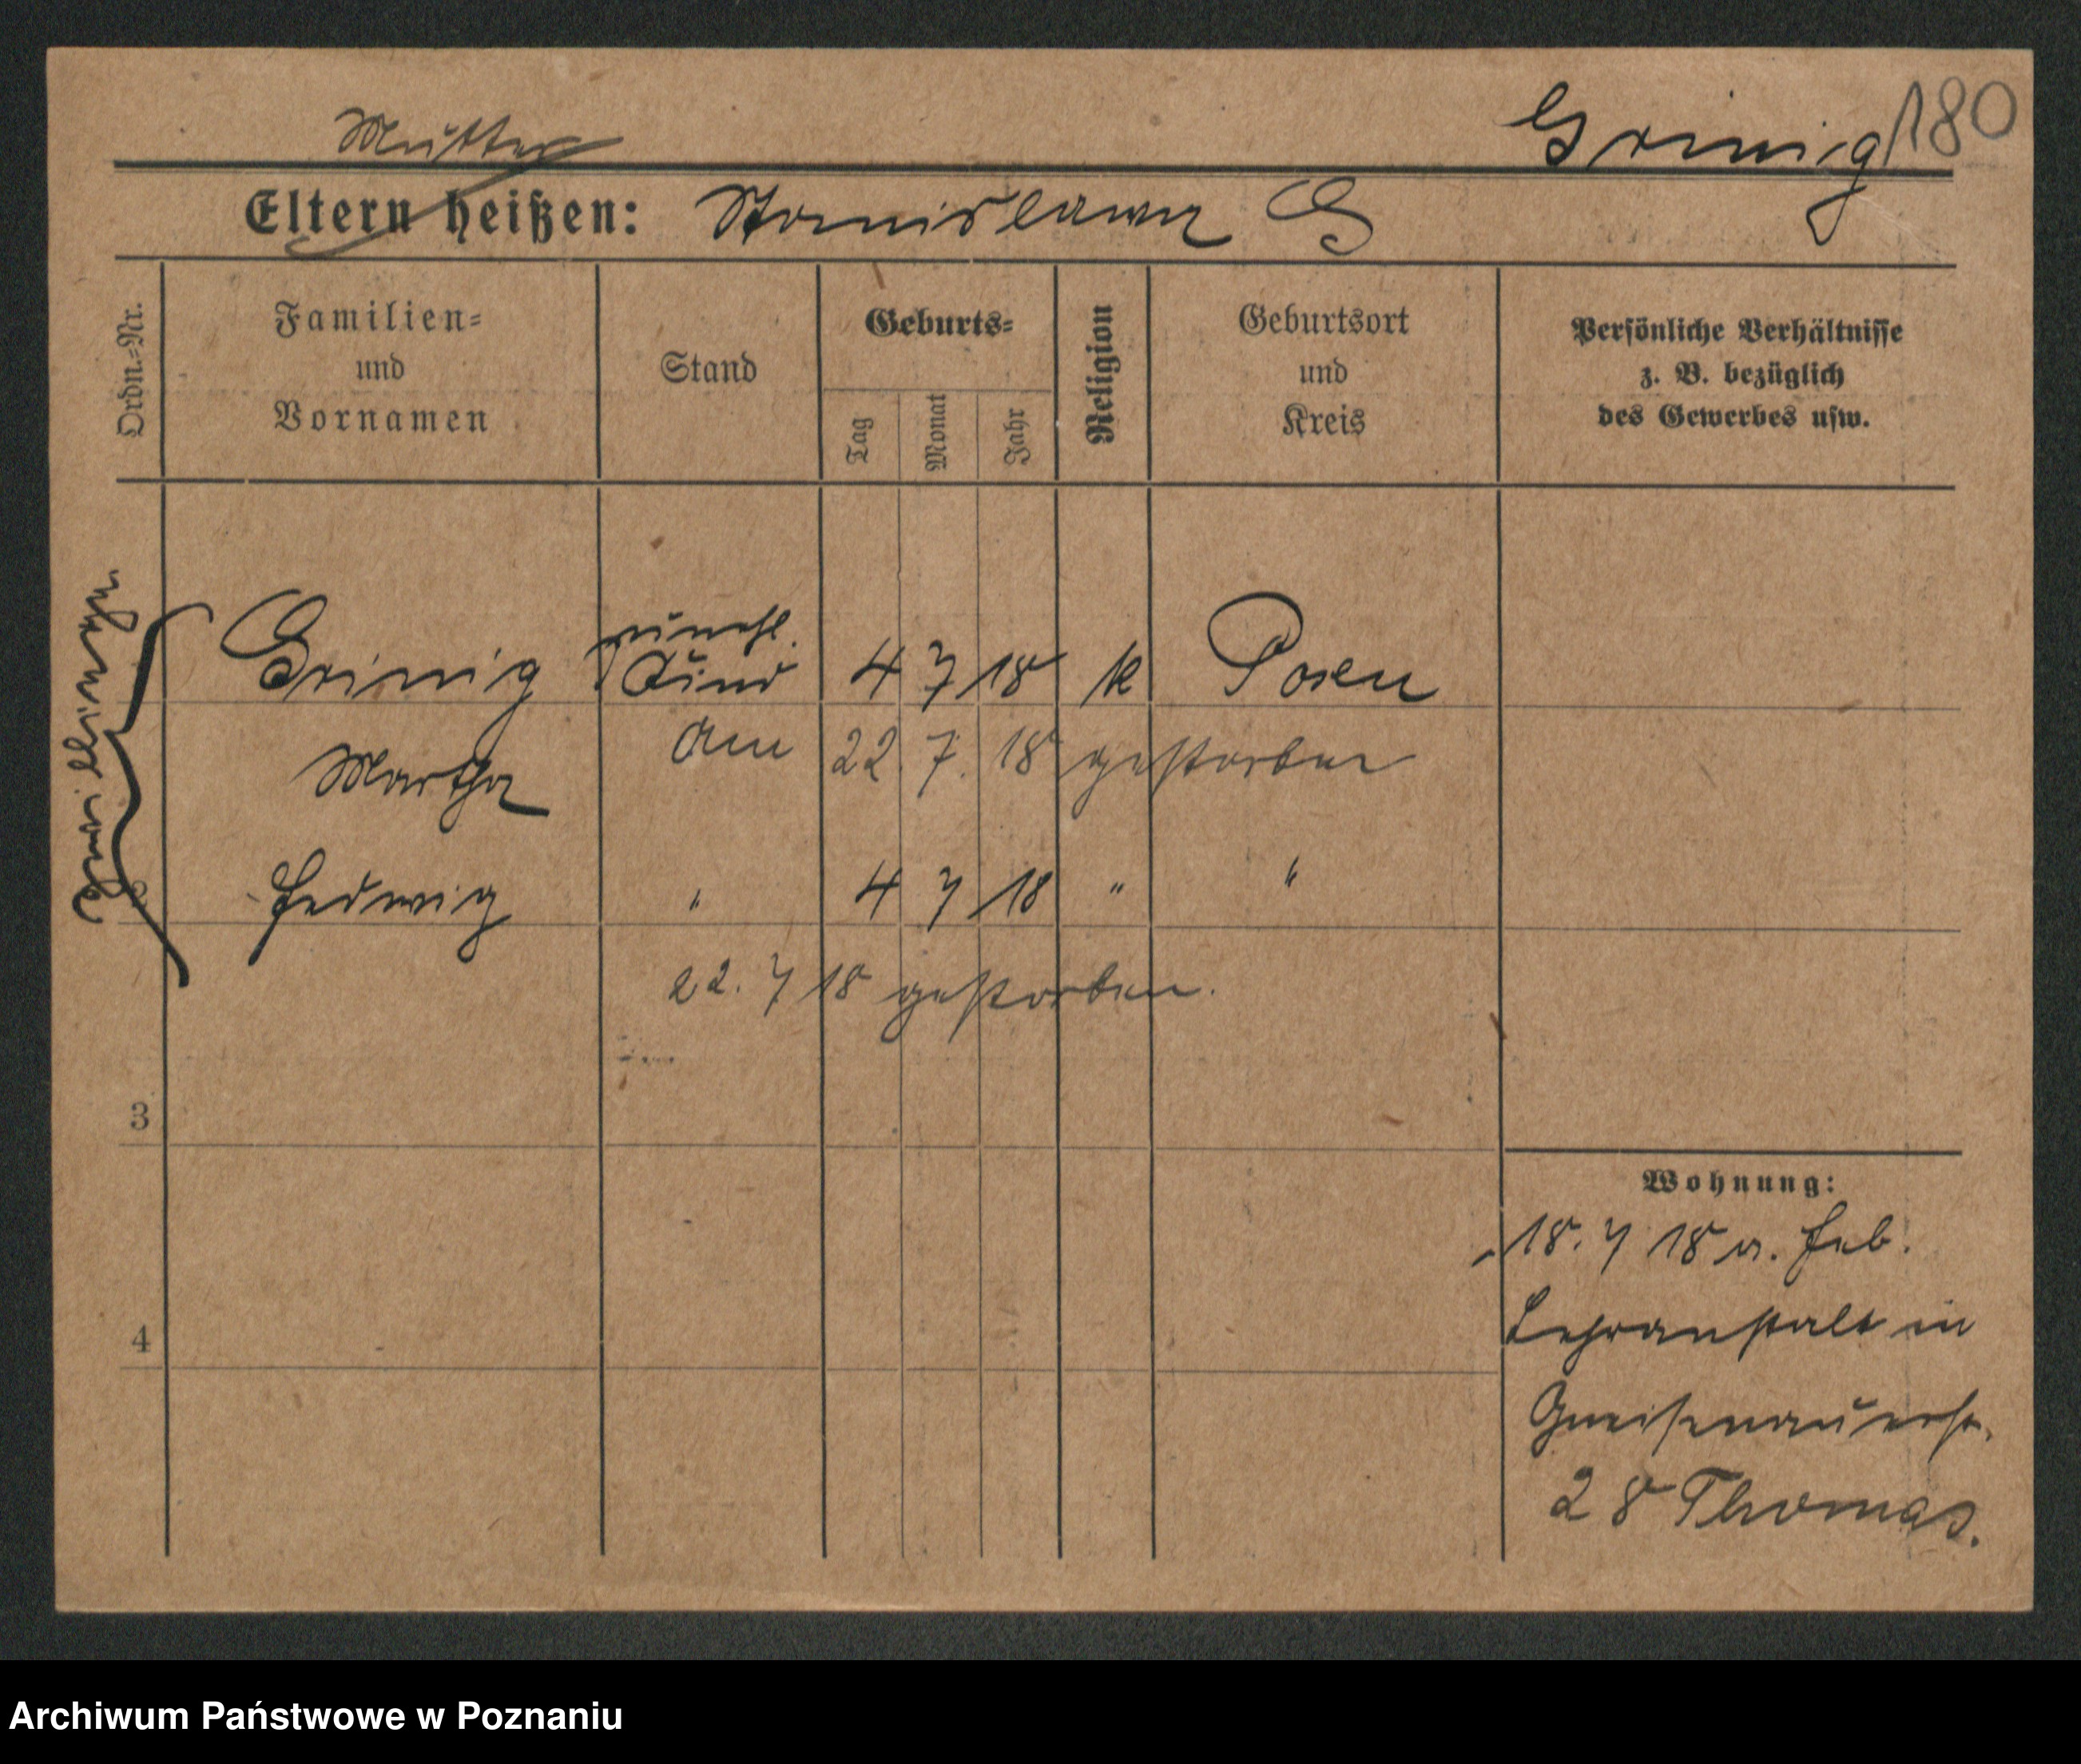 Grinig 180
Mutter
Eltern heißen: Stanislawa G
Ordn.-Nr.
Familien-
und
Vornamen
Stand
Geburts-
Tag
Monat
Jahr
Religion
Geburtsort
und
Kreis
Persönliche Verhältnisse
z. B. bezüglich
des Gewerbes usw.
Zwillinge
unehl.
Grinig Kind 4 7 18 k Posen
Martha am 22. 7. 18 gestorben
2 Hedwig " 4 7 18 " "
22. 7 18 gestorben.
3
4
Wohnung:
18. 7 18 a. Heb.
Lehranstalt in
Gneisenaustr.
28 Thomas.
Archiwum Państwowe w Poznaniu